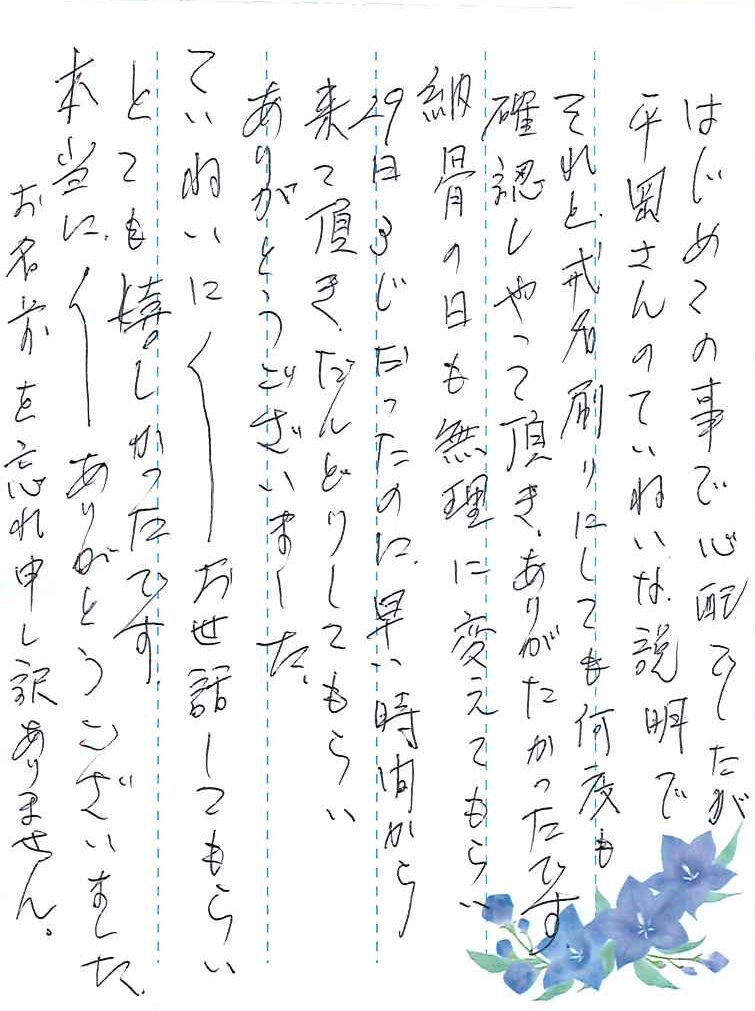 はじめての事で心配でしたが
平岡さんのていねいな説明で
それと、戒名刷りにしても何度も
確認しやって頂き、ありがたかったです
納骨の日も無理に変えてもらい
29日3じだったのに、早い時間から
来て頂き、だんどりしてもらい
ありがとうございました。
ていねいに〳〵お世話してもらい
とても嬉しかったです。
本当に、〳〵ありがとうございました。
お名前を忘れ申し訳ありません。